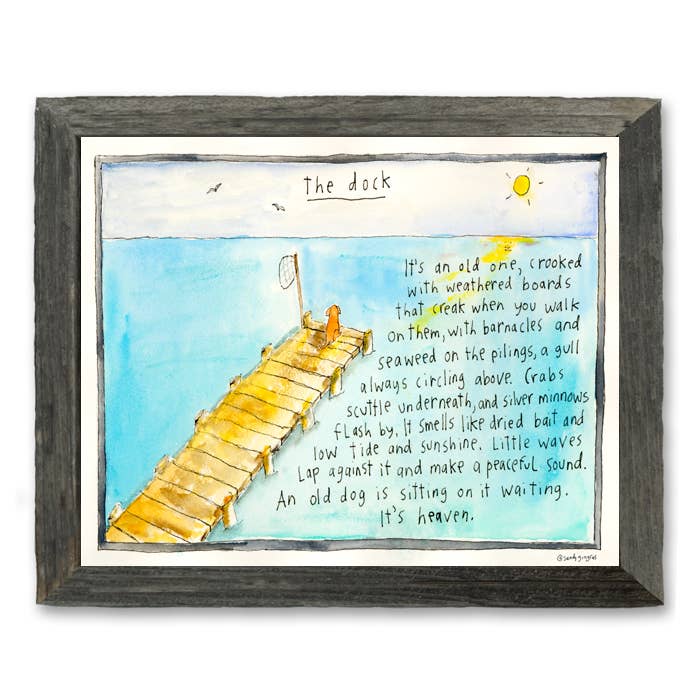 the dock
It's an old one, crooked
with weathered boards
that creak when you walk
on them, with barnacles and
seaweed on the pilings, a gull
always circling above. Crabs
scuttle underneath, and silver minnows
flash by. It smells like dried bait and
low tide and sunshine. Little waves
Lap against it and make a peaceful sound.
An old dog is sitting on it waiting.
It's heaven.
©sandy gingras